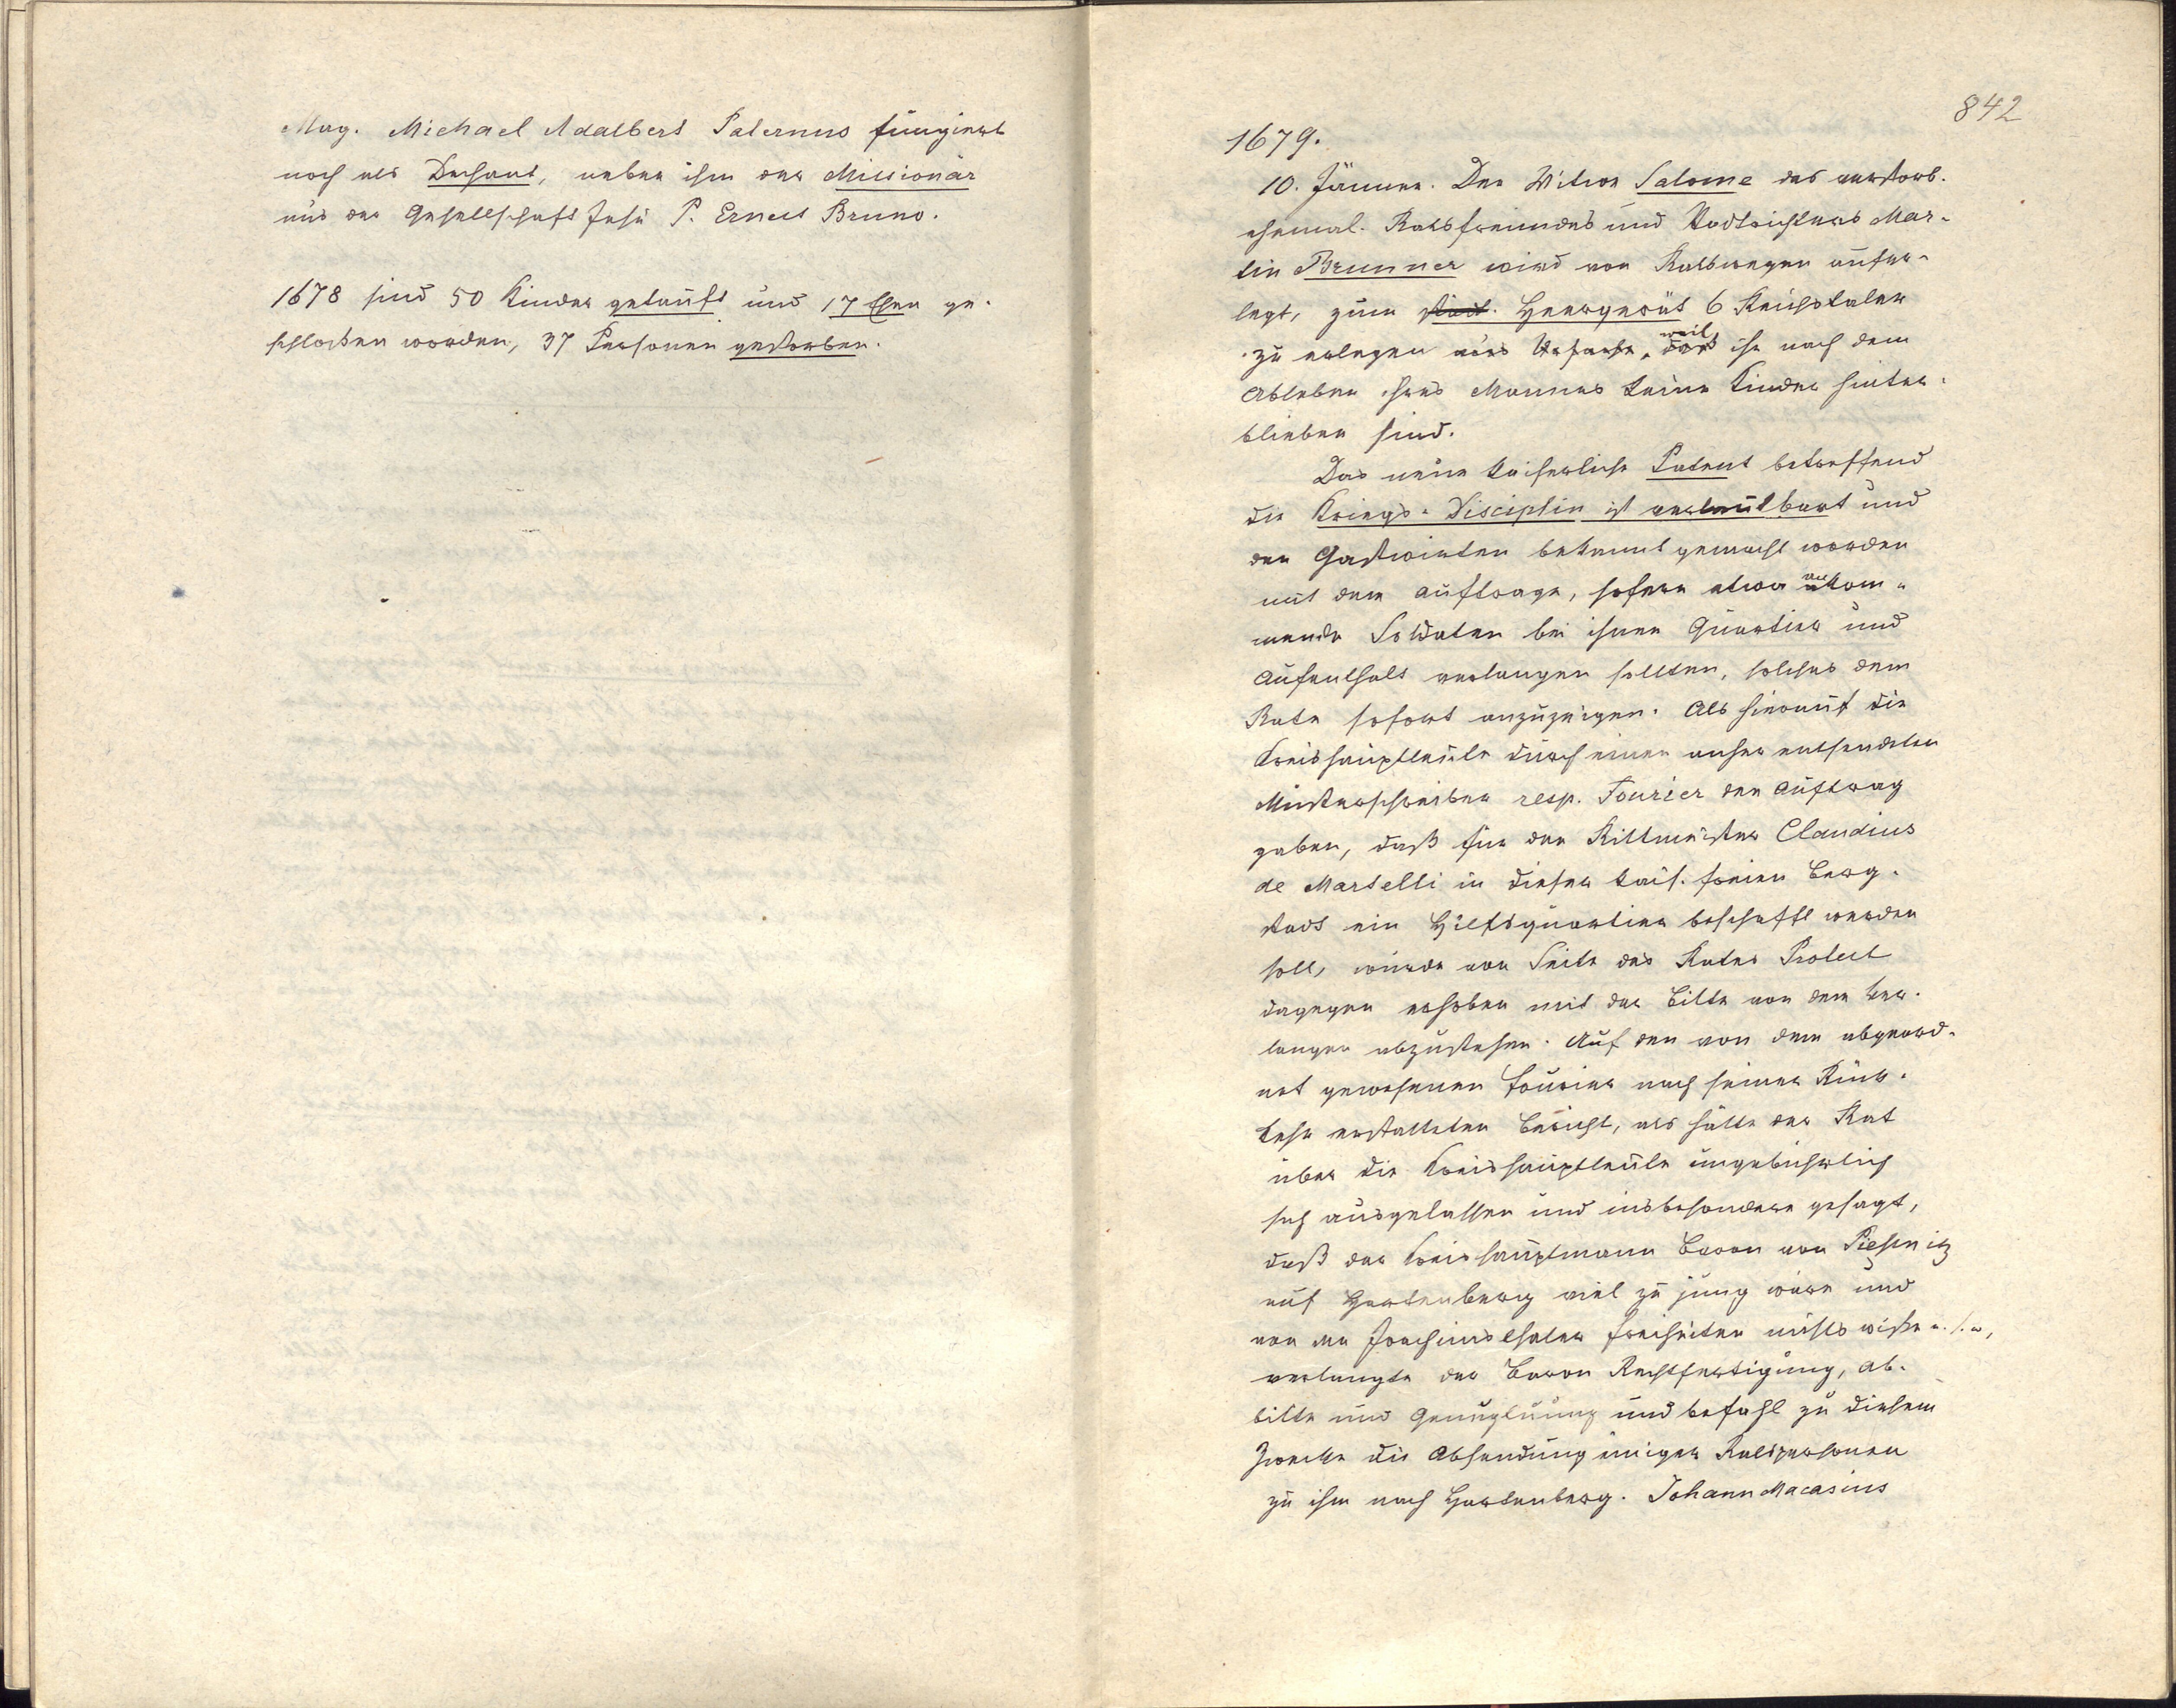 Mag. Michael Adalbert Paternus fungiert
noch als Dechant, neben ihm der Missionär
aus der Gesellschaft Jesu P. Ernest Bruno.
1678 sind 50 Kinder getauft und 17 Ehen ge-
schlossen worden, 37 Personen gestorben.
842
1679.
10. Jänner. Der Witwe Salome des verstorb.
ehemal. Ratsfreundes und Stadtrichters Mar-
tin Brunner wird von Ratswegen aufer-
legt, zum Heergerät 6 Reichstaler
zu erlegen aus Ursache, weil ihr nach dem
Ableben ihres Mannes keine Kinder hinter-
blieben sind.
Das neue kaiserliche Patent betreffend
die Kriegs-Disciplin ist verlautbart und
den Gastwirten bekannt gemacht worden
mit dem Auftrage, sofern etwa ankom-
mende Soldaten bei ihnen Quartier und
Aufenthalt verlangen sollten, solches dem
Rate sofort anzuzeigen. Als hierauf die
Kreishauptleute durch einen anher entsendeten
Musterschreiber resp. Fourier den Auftrag
gaben, daß für den Rittmeister Claudius
de Martelli in dieser kais. freien Berg-
stadt ein Hilfsquartier beschafft werden
soll, wurde von Seite des Rates Protest
dagegen erhoben mit der Bitte von dem Ver-
langen abzustehen. Auf den von dem abgeord-
net gewesenen Fourier nach seiner Rück-
kehr erstatteten Bericht, als hätte der Rat
über die Kreishauptleute ungebührlich
sich ausgelassen und insbesondere gesagt,
daß der Kreishauptmann Baron von Pießnitz
auf Hartenberg viel zu jung wäre und
von den Joachimsthaler Freiheiten nichts wisse u. s. w.,
verlangte der Baron Rechtfertigung, Ab-
bitte und Genugtuung und befahl zu diesem
Zwecke die Absendung einiger Ratspersonen
zu ihm nach Hartenberg. Johann Macasius